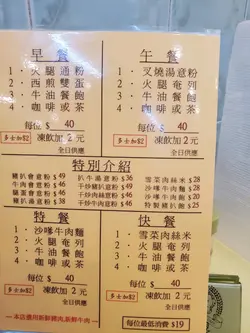 早餐
1・火腿通粉
2・西煎雙蛋
3・牛油餐飽
4・咖啡或茶
每位$ 40
多士加$2 凍飲加2元
全日供應
午餐
1・叉燒湯意粉
2・火腿奄列
3・牛油餐飽
4・咖啡或茶
每位$ 40
多士加$2 凍飲加2元
全日供應
特別介紹
豬扒會意粉$49
牛肉會意粉$46
雞蛋會意粉$46
豬扒湯意粉$38
扒牛湯意粉$36
干炒豬扒意粉$53
干炒肉絲意粉$53
干炒牛肉意粉$53
雪菜肉絲米$28
沙嗲牛肉麵$28
沙嗲牛肉飽$28
特製豬扒飽$25
特餐
1・沙嗲牛肉麵
2・火腿奄列
3・牛油餐飽
4・咖啡或茶
每位$ 40
多士加$2 凍飲加2元
全日供應
快餐
1・雪菜肉絲米
2・火腿奄列
3・牛油餐飽
4・咖啡或茶
每位$ 40
多士加$2 凍飲加2元
全日供應
本店選用新鮮豬肉,新鮮牛肉
每位最低消費$19